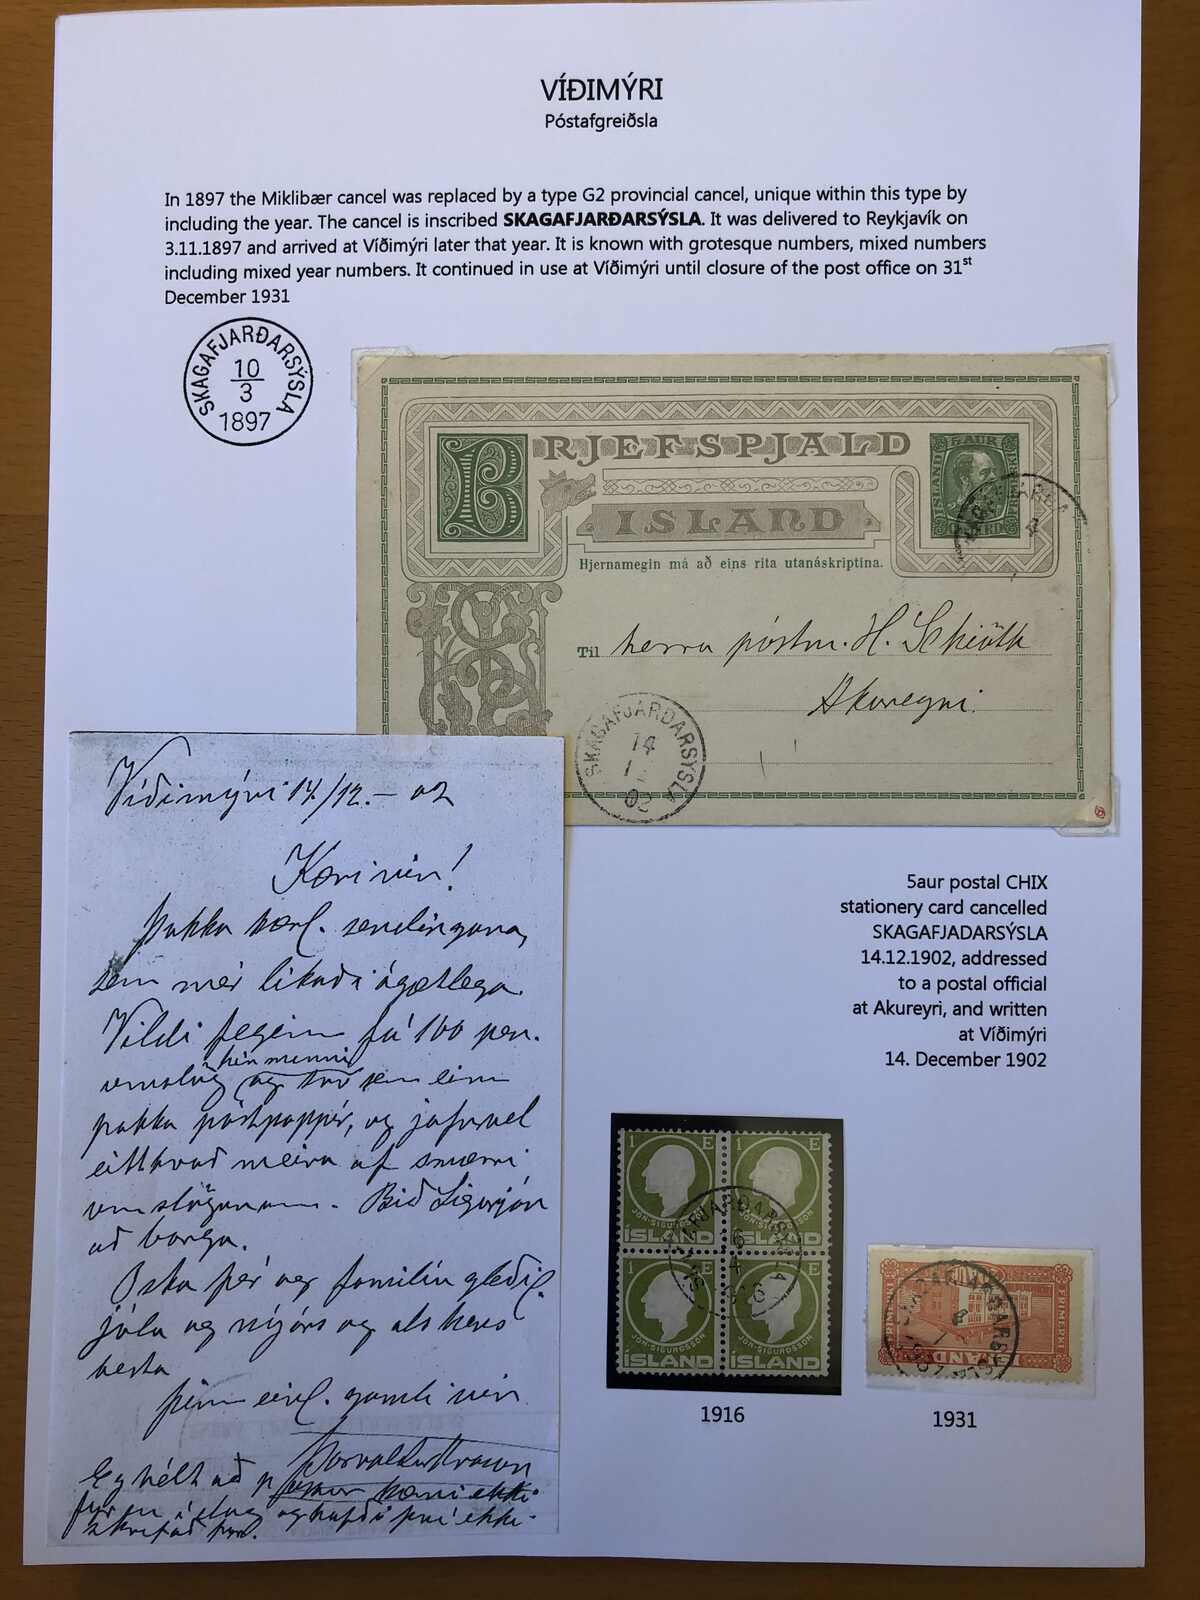 VÍÐIMÝRI
Póstafgreiðsla
In 1897 the Miklibær cancel was replaced by a type G2 provincial cancel, unique within this type by
including the year. The cancel is inscribed SKAGAFJARÐARSÝSLA. It was delivered to Reykjavík on
3.11.1897 and arrived at Víðimýri later that year. It is known with grotesque numbers, mixed numbers
including mixed year numbers. It continued in use at Víðimýri until closure of the post office on 31st
December 1931
SKAGAFJARÐARSÝSLA
10
3
1897
BRJEFSPJALD
ÍSLAND
5 AUR
Hjernamegin má að eins rita utanáskriptina.
Til herra póstm. H. Schiöth
Akureyri.
SKAGAFJARÐARSÝSLA
14
02
Víðimýri 14/12.- 02
Kæri vin!
Þakka kærl. sendinguna,
sem mér líkaði ágætlega.
Vildi fegin fá 100 pen.
hin minni
umslög og svo sem einn
pakka póstpappír, og jafnvel
eitthvað meira af smærri
umslögunum. Bið Sigurjón
að borga.
Óska þér og familíu gleðil.
jóla og nýjárs og alls hins
besta
þinn einl. gamli vin
Eg hélt að
5aur postal CHIX
stationery card cancelled
SKAGAFJADARSÝSLA
14.12.1902, addressed
to a postal official
at Akureyri, and written
at Víðimýri
14. December 1902
1 E 1 E
JÓN·SIGURÐSSON JÓN·SIGURÐSSON
ÍSLAND ÍSLAND
1 E 1 E
JÓN·SIGURÐSSON JÓN·SIGURÐSSON
ÍSLAND ÍSLAND
FRÍMERKI
1916
1931